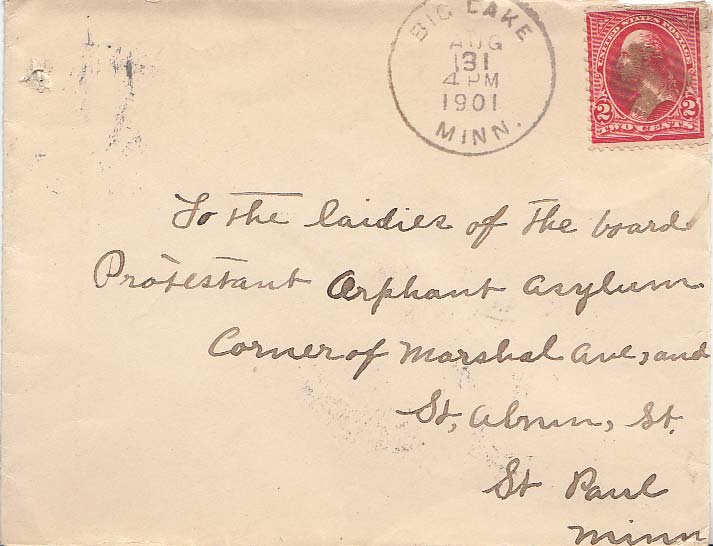 BIG LAKE
AUG
31
4 PM
1901
MINN.
UNITED STATES POSTAGE
2 2
TWO CENTS
To the laidies of the board
Protestant Orphant Asylum
Corner of Marshal Ave, and
St, Albnin, St.
St Paul
Minn